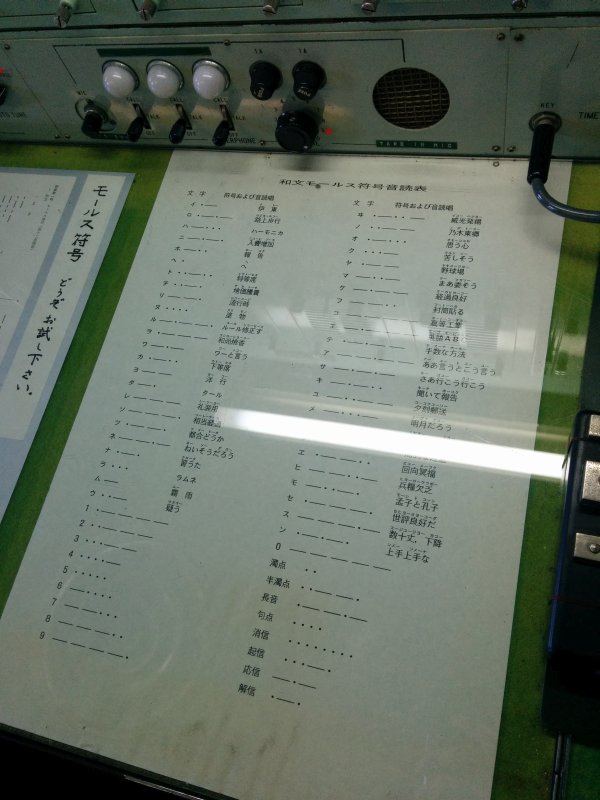 MIC
CALL
TALK
OFF
CALL
TALK
OFF
CALL
TALK
OFF
1A
1A
KEY
TIME
TAKE IN MIC
モールス符号
どうぞお試し下さい。
和文モールス符号音読表
文字 符号および音読唱
イ ・— 伊東
ロ ・—・— 路上歩行
ハ —・・・ ハーモニカ
ニ —・—・ 入費増加
ホ —・・ 報告
ヘ ・ へ
ト ・・—・・ 特等席
チ ・・—・
リ ——・ 流行時
ヌ ・・・・
ル —・——・ ルール修正す
ヲ ・——— 和尚焼香
ワ —・— ワーと言う
カ ・—・・ 下等席
ヨ —— 洋行
タ —・ タール
レ ——— 礼装用
ソ ———・ 相当最高
ツ ・——・ 都合どうか
ネ ——・— ねいそうだろう
ナ ・—・ 習うた
ラ ・・・ ラムネ
ム — 霧
ウ ・・— 疑う
1 ・————
2 ・・———
3 ・・・——
4 ・・・・—
5 ・・・・・
6 —・・・・
7 ——・・・
8 ———・・
9 ————・
文字 符号および音読唱
ヰ ・—・・— 威光発揚
ノ ・・—— 乃木東郷
オ ・—・・・ 思う心
ク ・・・— 苦しそう
ヤ ・—— 野球場
マ —・・— まあ姿そう
ケ —・—— 経過良好
フ ——・・ 封筒貼る
コ ———— 高等工業
エ —・——— 英語ABC
テ ・—・—— 手数な方法
ア ——・—— ああ言うとこう言う
サ —・—・— さあ行こう行こう
キ —・—・・ 聞いて報告
ユ —・・—— 夕刻郵送
メ —・・・— 明月だろう
ヱ ・——・・ 回向冥福
ヒ ——・・— 兵糧欠乏
モ —・・—・ 孟子と孔子
セ ・———・ 世評良好だ
ス ———・— 数十丈，下降
ン ・—・—・ 上手上手な
0 —————
濁点 ・・
半濁点 ・・——・
長音 ・——・—
句点
消信
起信
応信
解信